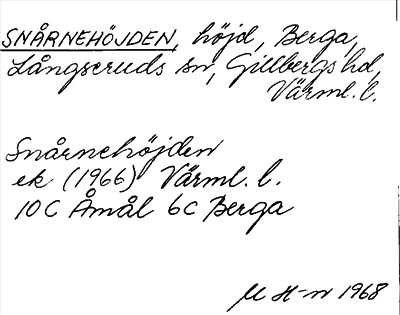 SNÅRNEHÖJDEN, höjd, Berga,
Långseruds sn, Gillbergs hd,
Värml. l.
Snårnehöjden
ek (1966) Värml. l.
10C Åmål 6C Berga
M H-n 1968